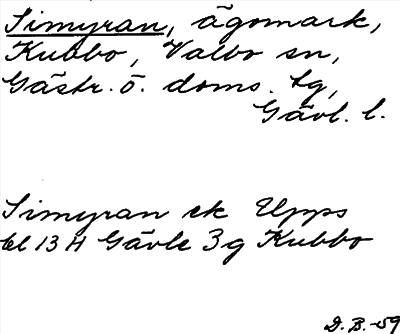 Simyran, ägomark,
Kubbo, Valbo sn,
Gästr. ö. doms. tg,
Gävl. l.
Simyran ek Upps
bl 13 H Gävle 3g Kubbo
D.B. -59